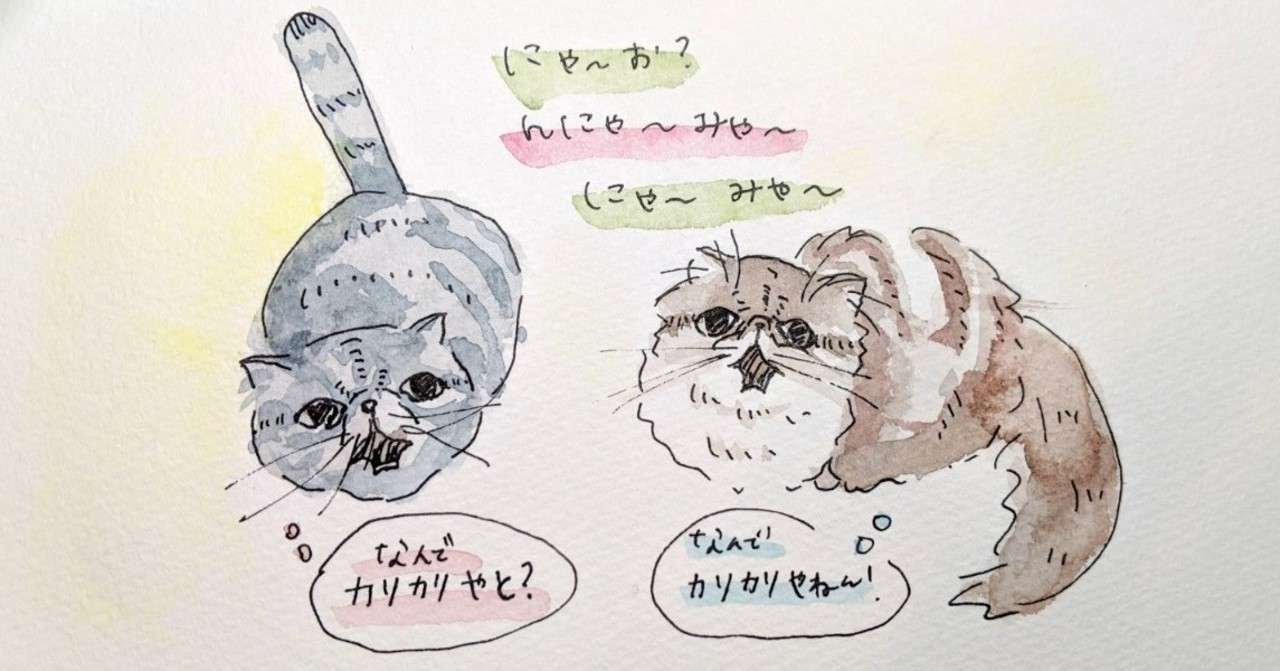 にゃ〜お?
んにゃ〜みゃ〜
にゃ〜 みゃ〜
なんで
カリカリやと?
なんで
カリカリやねん!